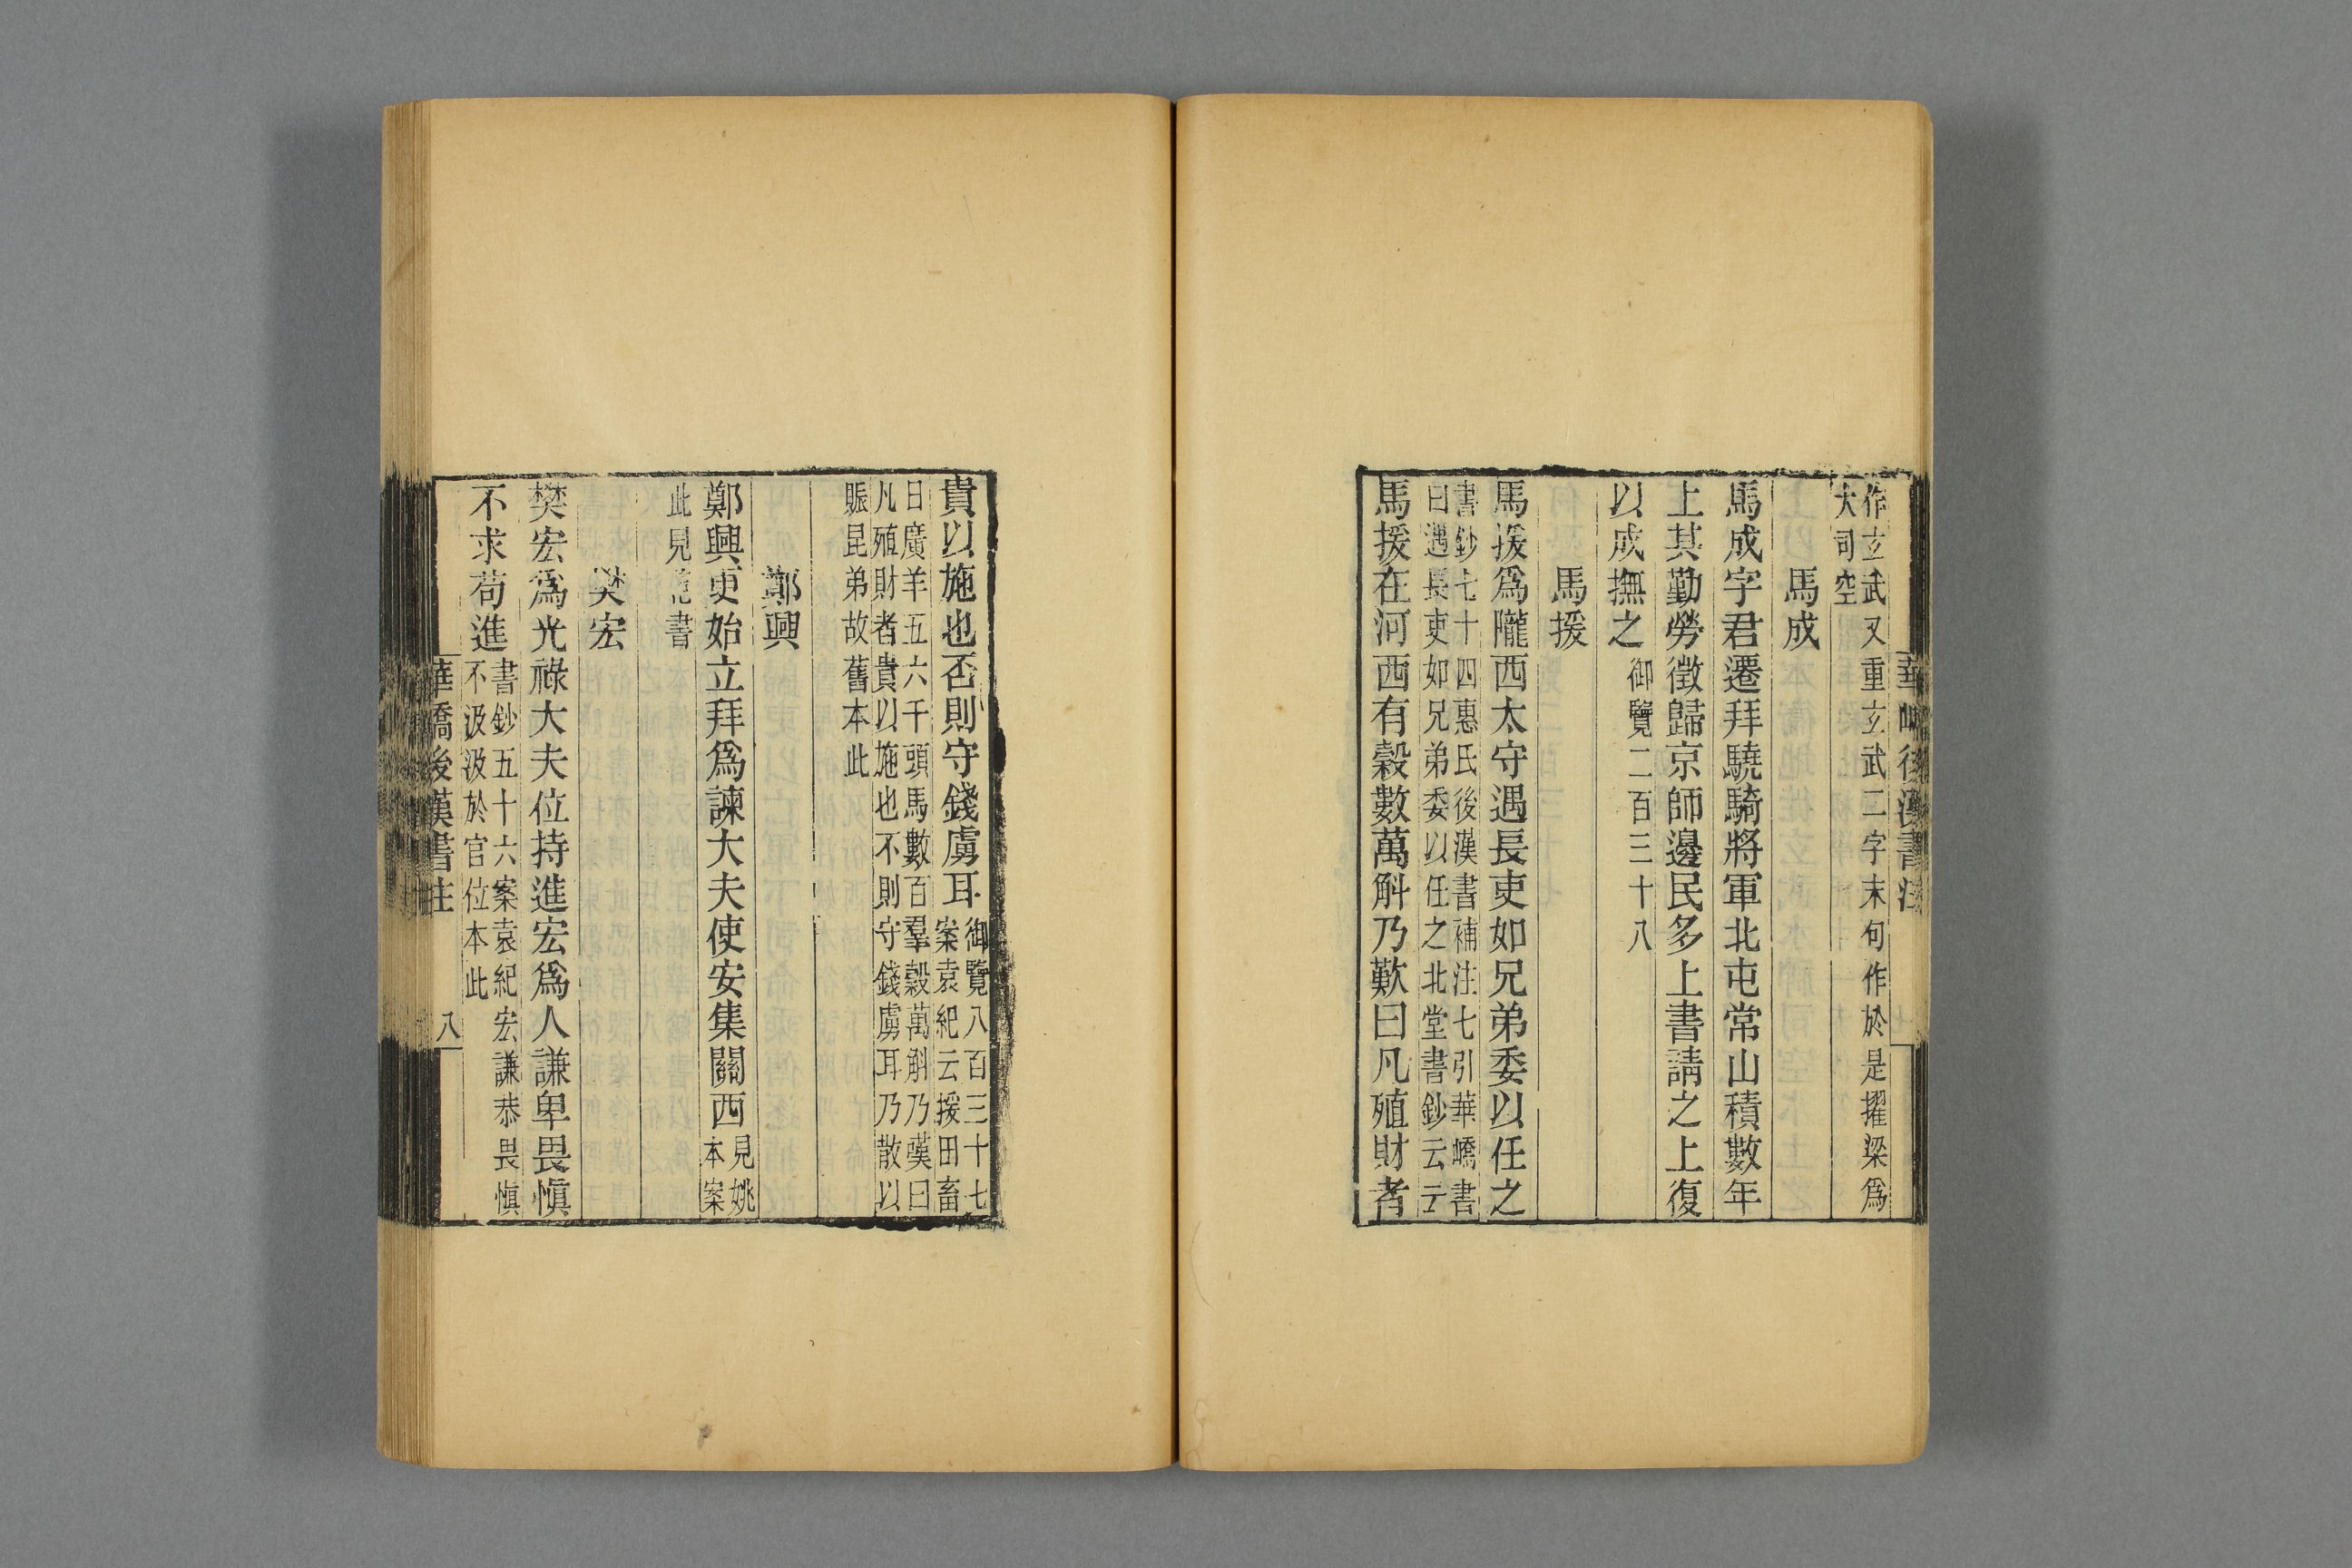 作玄武又重玄武二字末句作於是擢梁爲
大司空
馬成
馬成字君遷拜驍騎將軍北屯常山積數年
上其勤勞徵歸京師邊民多上書請之上復
以成撫之御覽二百三十八
馬援
馬援爲隴西太守遇長吏如兄弟委以任之
書鈔七十四惠氏後漢書補注七引華嶠書
曰遇長吏如兄弟委以任之北堂書鈔云云
馬援在河西有穀數萬斛乃歎曰凡殖財者
貴以施也否則守錢虜耳御覽八百三十七
案袁紀云援田畜
日廣羊五六千頭馬數百羣穀萬斛乃嘆曰
凡殖財者貴以施也不則守錢虜耳乃散以
賑昆弟故舊本此
鄭興
鄭興更始立拜爲諫大夫使安集關西見姚
本案
此見范書
樊宏
樊宏爲光祿大夫位特進宏爲人謙卑畏愼
不求苟進書鈔五十六案袁紀宏謙恭畏愼
不汲汲於官位本此
華嶠後漢書注
八